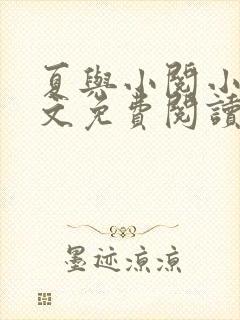 夏與小閱小
文免費閱讀
墨迹凉凉